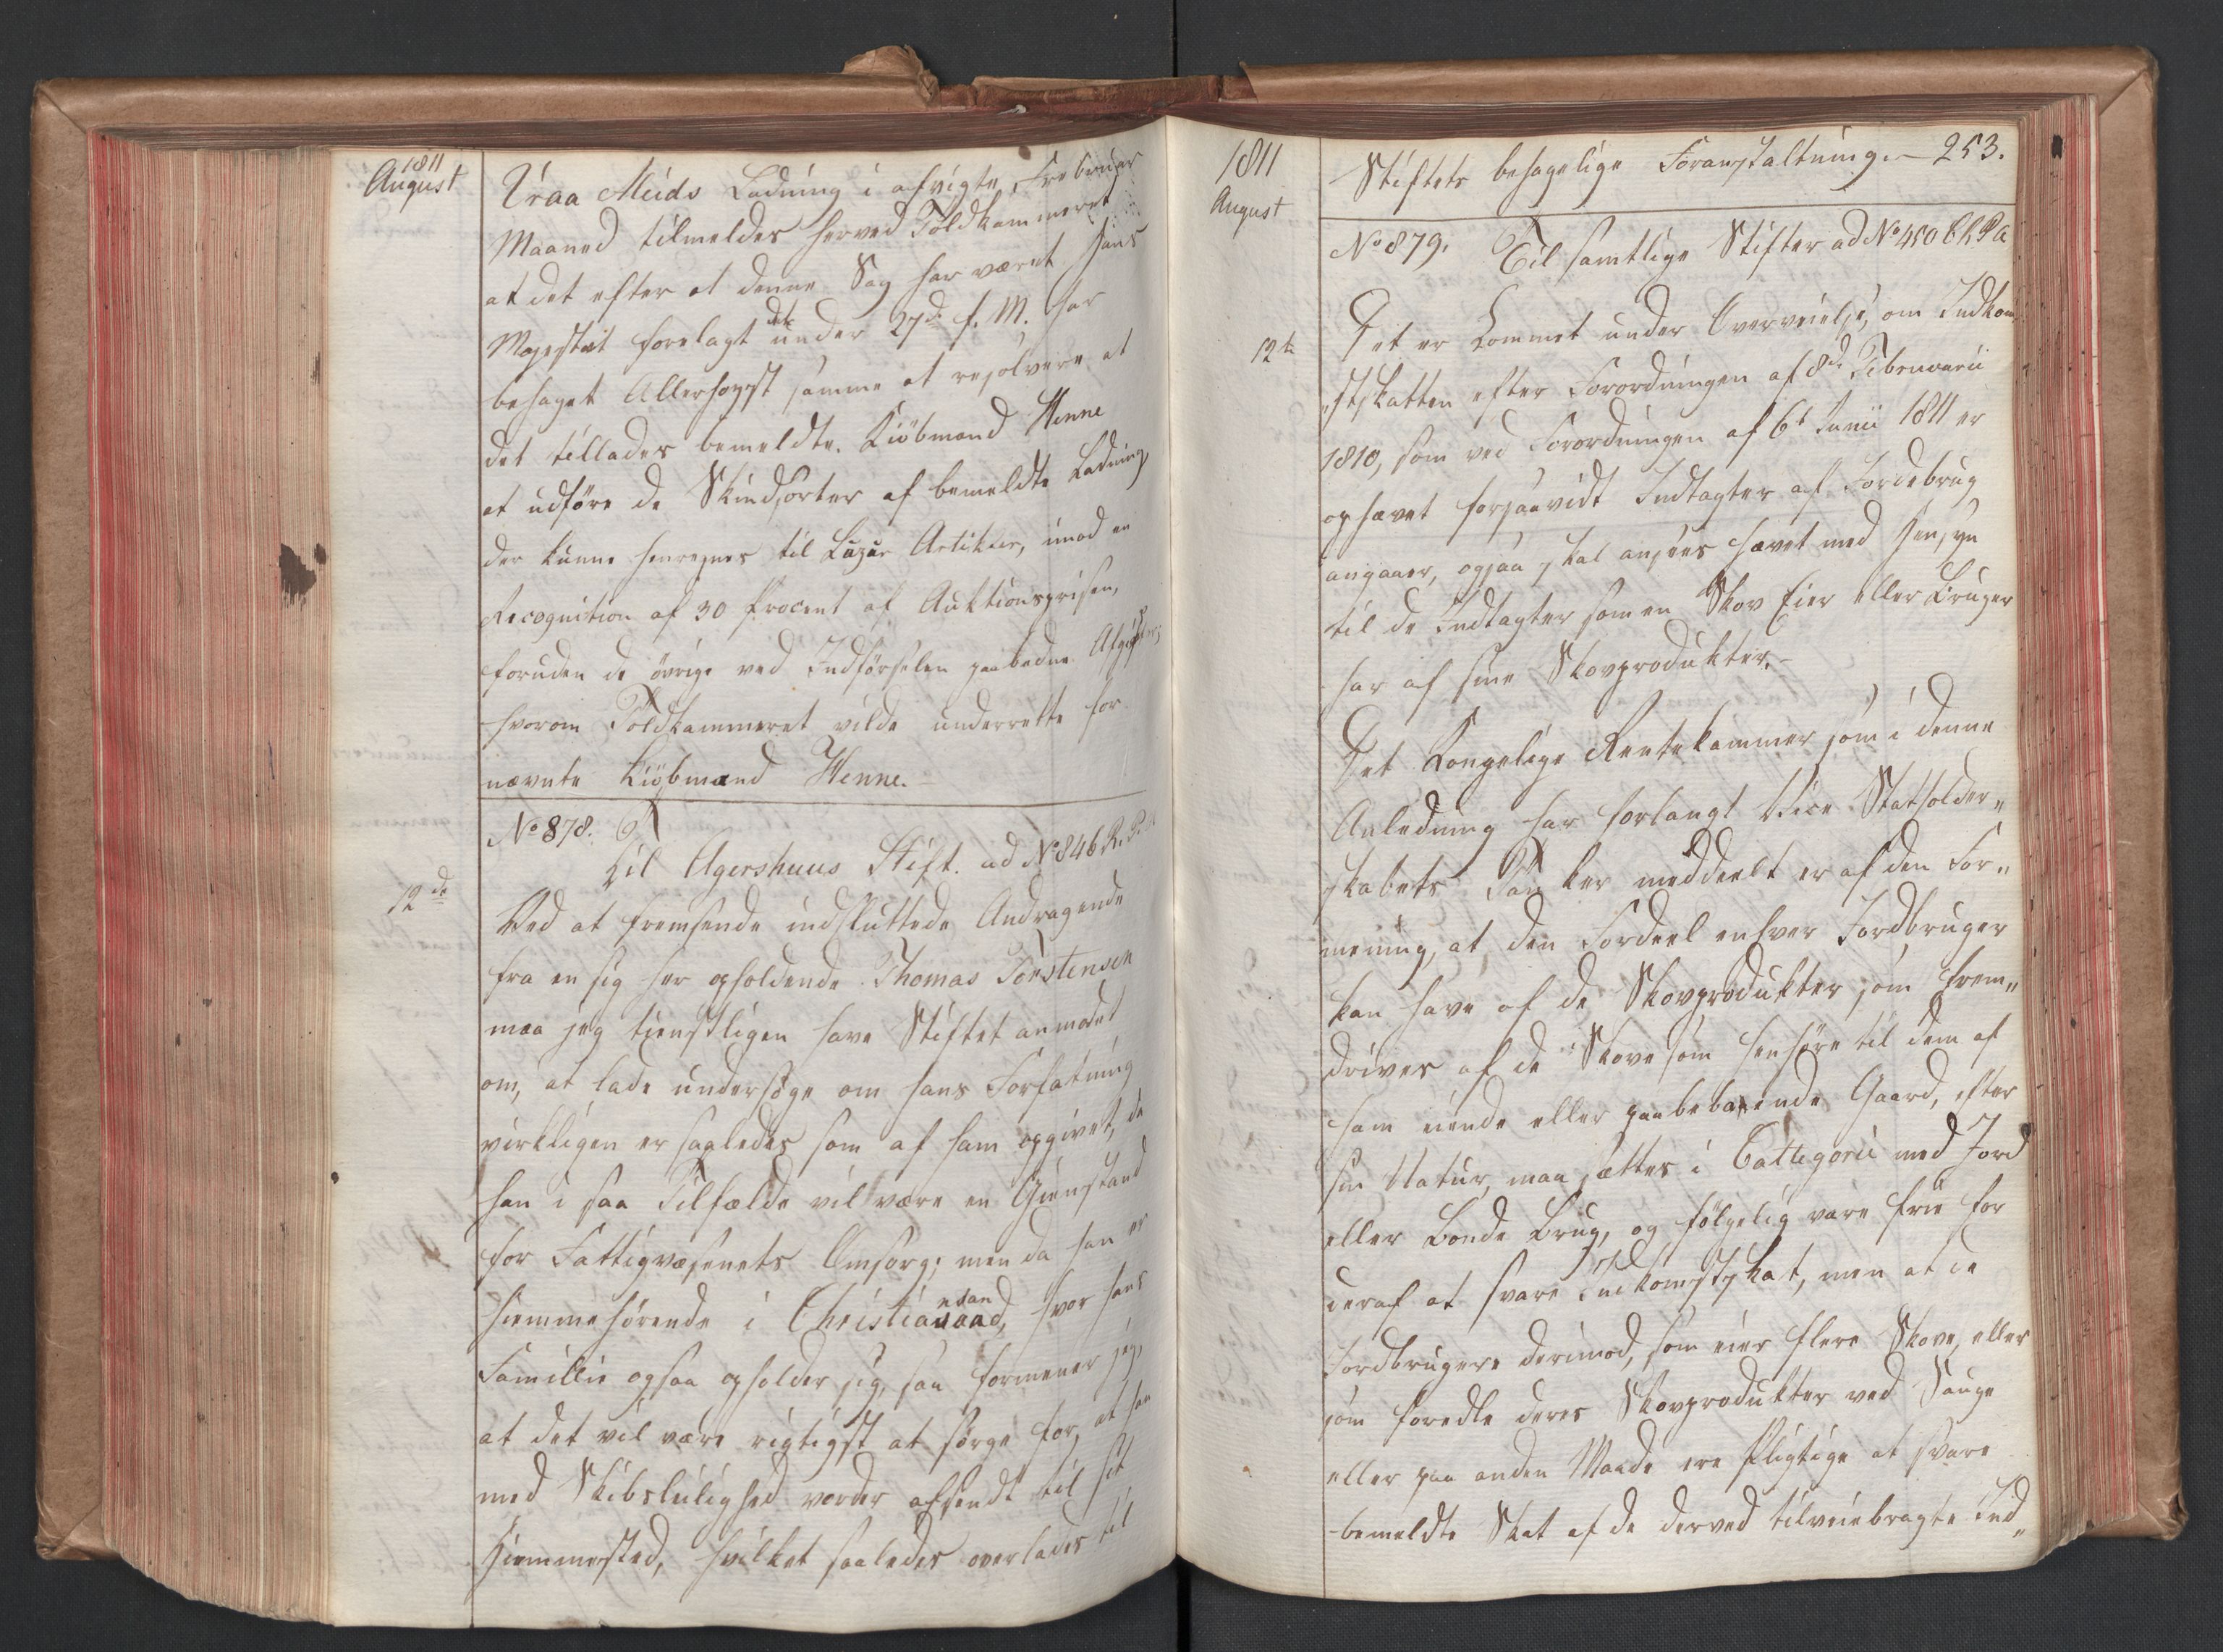 1811
August
Vraa Meids Ladning i afvigte Februar
Maaned tilmeldes herved Toldkammeret
at det efter at denne Sag har været Hans
Majestæt forelagt det under 27de f. M. har
behaget Allerhøyst samme at resolvere at
det tillades bemeldte Kiöbmand Henne
at udföre de Skindsorter af bemeldte Ladning,
der kunne henregnes til Luxus Artikler, imod en
Recognition af 30 Procent af Auktionsprisen,
foruden de övrige ved Indförselen paabudne Afgifter;
hvorom Toldkammeret vilde underrette for¬
nævnte Kiöbmand Henne.
No 878.
Til Agershuus Stift. ad No 846 R. P.
12de
Ved at fremsende indsluttede Andragende
fra en sig her opholdende Thomas Torstensen
maa jeg tienstligen have Stiftet anmodet
om, at lade undersöge om hans Forfatning
virkligen er saaledes som af ham opgivet, da
han i saa Tilfælde vil være en Gienstand
for Fattigvæsenets Omsorg; men da han er
hiemmehörende i Christiansand, hvor hans
Familie ogsaa opholder sig, saa formener jeg,
at det vil være rigtigst at sörge for, at han
med Skibsleilighed vorder afsendt til sit
Hiemmested, hvilket saaledes overlades til
1811
August
Stiftets behagelige Foranstaltning. — 253.
No 879. Til samtlige Stifter ad No 450 Ch P a
12te
Det er kommet under Overveielse, om Indkom„
„stskatten efter Forordningen af 8de Februarii
1810, som ved Forordningen af 6te Junii 1811 er
ophævet forsaavidt Indtægter af Jordebrug
angaaer, ogsaa skal ansees hævet med Hensyn
til de Indtægter som en Skov Eier eller Bruger
har af sine Skovprodukter. —
Det Kongelige Rentekammer som i denne
Anledning har forlangt Vice Statholder„
skabets Tanker meddeelt er af den For„
mening, at den Fordeel enhver Jordbruger
kan have af de Skovprodukter som frem„
drives af de Skove som henhöre til dem af
ham eiende eller paaboende Gaard, efter
sin Natur, maa sættes i Cattegorie med Jord
eller Bonde Brug, og fölgelig være frie for
deraf at svare Indkomstskat, men at de
Jordbrugere derimod, som eier flere Skove, eller
som foredle deres Skovprodukter ved Sauge
eller paa anden Maade ere pligtige at svare
bemeldte Skat af de derved tilveiebragte Ind„